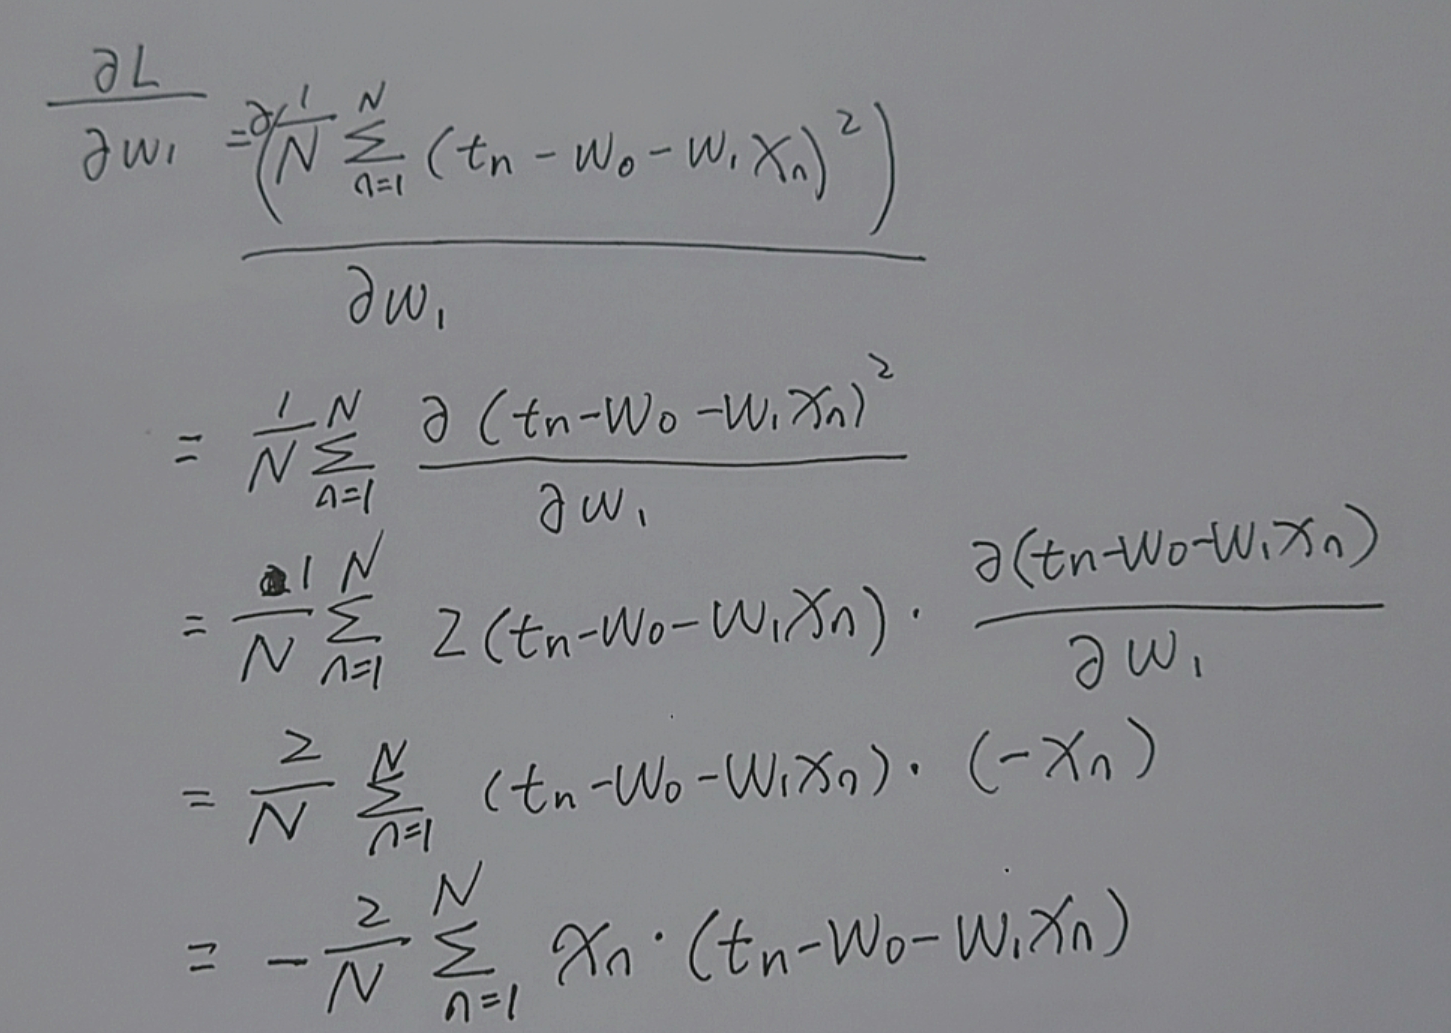 ∂L/∂w₁ = ∂(1/N ∑_{n=1}^{N} (tn - w₀ - w₁xn)²)/∂w₁
= 1/N ∑_{n=1}^{N} ∂(tn - w₀ - w₁xn)²/∂w₁
= 1/N ∑_{n=1}^{N} 2(tn - w₀ - w₁xn) · ∂(tn - w₀ - w₁xn)/∂w₁
= 2/N ∑_{n=1}^{N} (tn - w₀ - w₁xn) · (-xn)
= - 2/N ∑_{n=1}^{N} xn · (tn - w₀ - w₁xn)